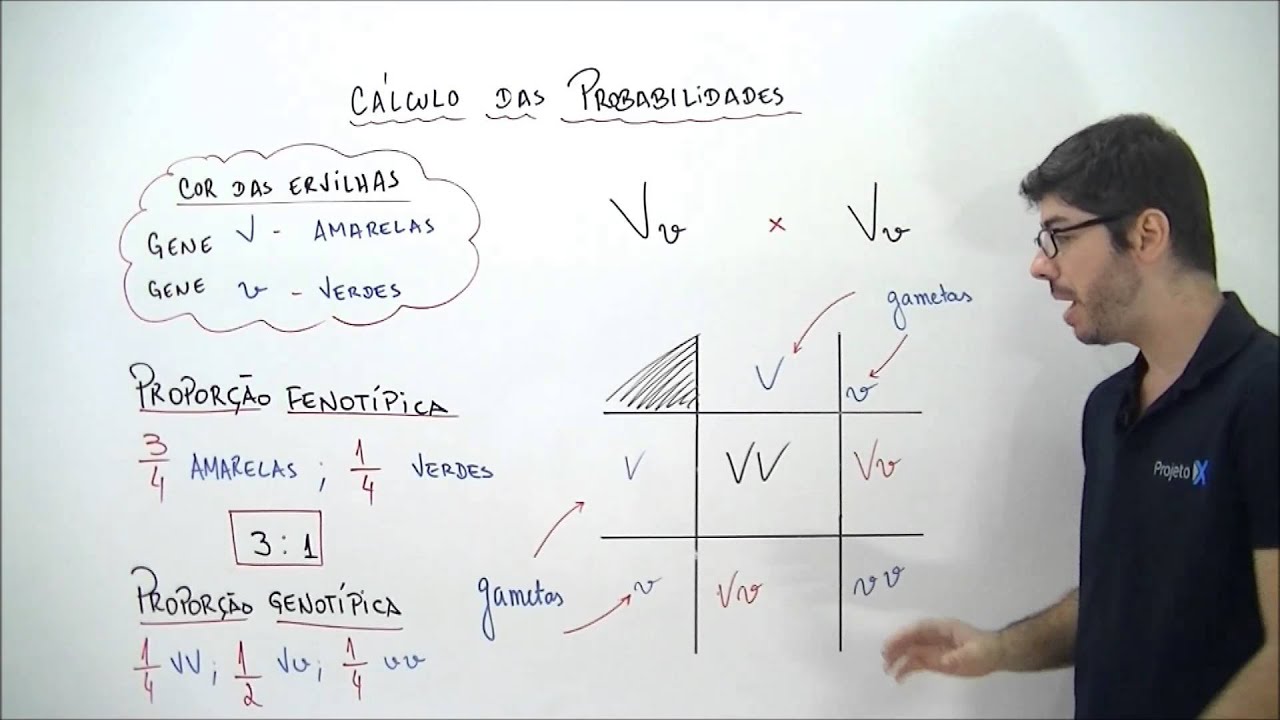 CÁLCULO DAS PROBABILIDADES
COR DAS ERVILHAS
GENE V - AMARELAS
GENE v - VERDES
PROPORÇÃO FENOTÍPICA
3/4 AMARELAS ; 1/4 VERDES
3 : 1
PROPORÇÃO GENOTÍPICA
1/4 VV; 1/2 Vv; 1/4 vv
Vv x Vv
gametas
V v
V VV Vv
gametas
v Vv vv
Projeto X